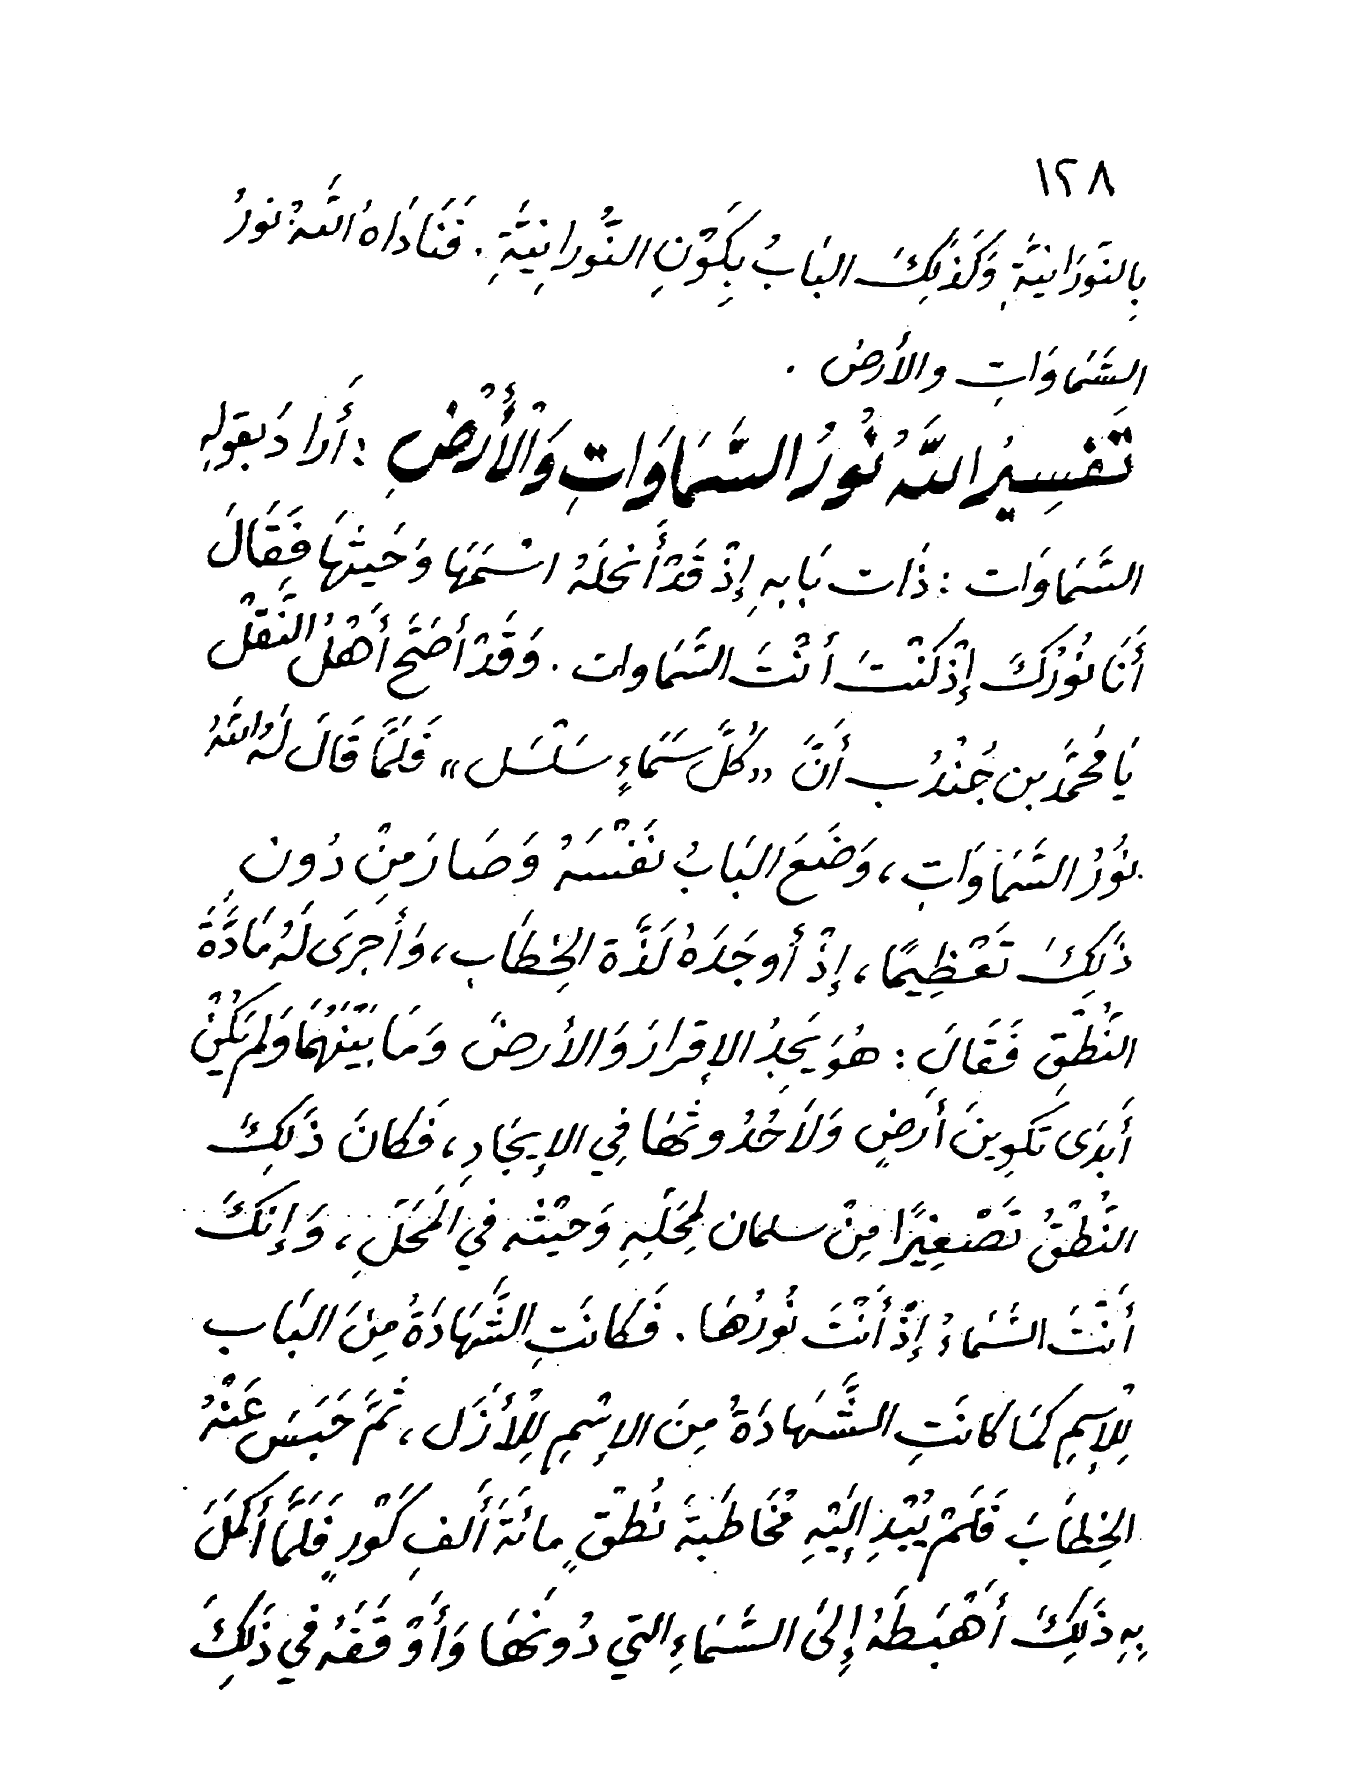 ١٢٨
بِالنَوَرَانِيَّةِ وَكَذَلِكَ البَابُ بِكَوْنِ النُّورانِيَّةِ . فَنَادَاهُ اللَّهُ نورُ
السَّمَاوَاتِ والأَرض .
تَفسِيرُ اللَّهُ نُورُ السَّمَاوَاتِ وَالْأَرْضِ : أَرادَ بقولِهِ
السَّمَاوَات : ذَات بَابِهِ إِذْ قَدْ أَنحلَهُ اسْمَهَا وَحَيثَهَا فَقَالَ
أَنَا نُورُكَ إِذْ كُنْتَ أَنْتَ السَّمَاوات . وَقَدْ أَصَحَّ أَهْلُ النَّقْل
يَا مُحَمَّدُ بن جُنْدُب أَنَّ «كُلَّ سَمَاءٍ سَلْسَل» فَلَمَّا قَالَ لَهُ اللَّهُ
نُورُ السَّمَاوَاتِ، وَضَعَ البَابُ نَفْسَهُ وَصَارَ مِنْ دُونِ
ذَلِكَ تَعْظِيمًا، إِذْ أَوجَدَهُ لَذَّة الخِطَابِ، وَأَجرَى لَهُ مَادَّةَ
النُّطْقِ فَقَالَ : هُوَ يَجِدُ الإِقرارَ وَالأَرضَ وَمَا بَيْنَهُمَا وَلَم يَكُنْ
أَبدَى تَكوِينَ أَرَضٍ وَلَا حُدُوثَهَا فِي الإِيجَادِ، فَكَانَ ذَلِكَ
النُّطْقُ تَصْغِيرًا مِنْ سلمان لِمَحَلِّهِ وَحَيْثه في المَحَلِّ، وَإِنَّكَ
أَنْتَ السَّمَاءُ إِذْ أَنْتَ نُورُهَا . فَكَانَتِ الشَّهَادَةُ مِنَ البَاب
لِلإِسمِ كَمَا كَانَتِ الشَّهَادَةُ مِنَ الإِسْمِ لِلْأَزَل، ثُمَّ حَبَسَ عَنْهُ
الخِطَابَ فَلَمْ يُبْدِ إِلَيْهِ مُخَاطَبَةَ نُطْقٍ مائَةَ أَلفِ كَوْرٍ فَلَمَّا أَكمَلَ
بِهِ ذَلِكَ أَهْبَطَهُ إِلى السَّمَاءِ التي دُونَهَا وَأَوْقَفَهُ في ذَلِكَ